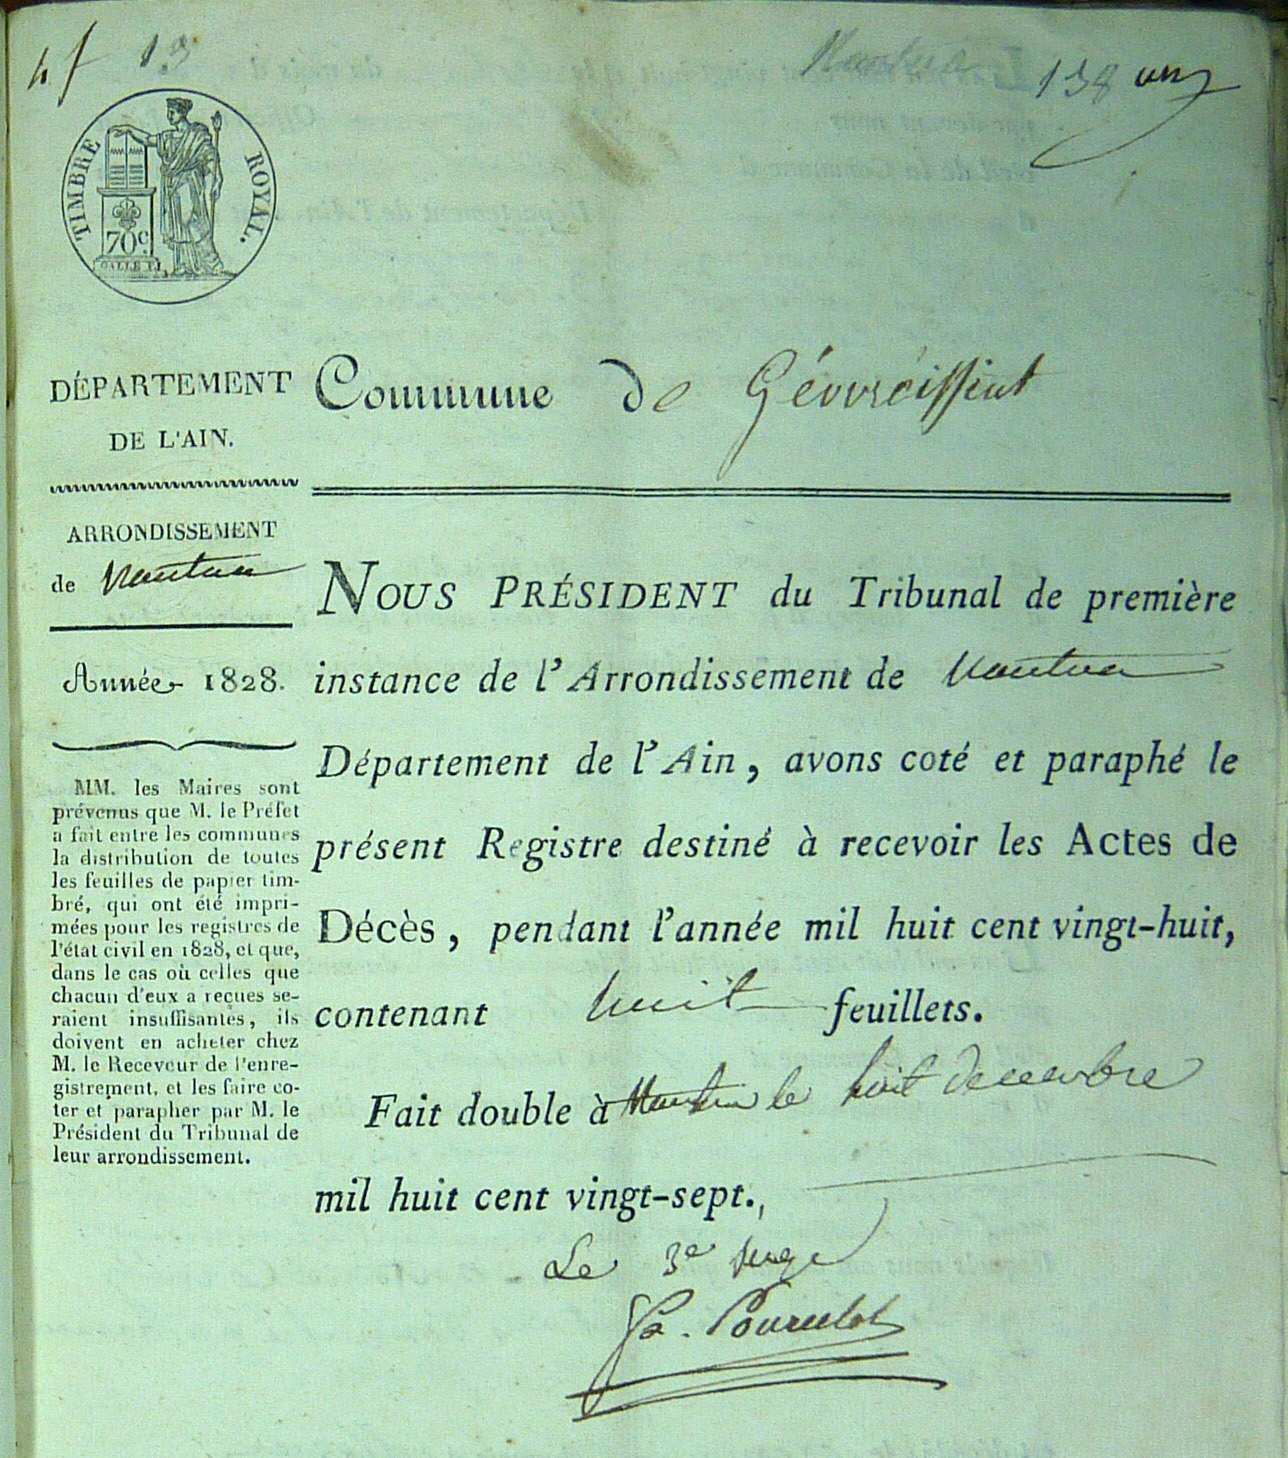 4f 13
Nantua
138 un
TIMBRE ROYAL.
70c.
DÉPARTEMENT
DE L'AIN.
Commune de Gévvreissiat
ARRONDISSEMENT
de Nantua
Année 1828.
MM. les Maires sont
prévenus que M. le Préfet
a fait entre les communes
la distribution de toutes
les feuilles de papier tim-
bré, qui ont été impri-
mées pour les registres de
l'état civil en 1828, et que,
dans le cas où celles que
chacun d'eux a reçues se-
raient insuffisantes, ils
doivent en acheter chez
M. le Receveur de l'enre-
gistrement, et les faire co-
ter et parapher par M. le
Président du Tribunal de
leur arrondissement.
NOUS PRÉSIDENT du Tribunal de première
instance de l'Arrondissement de Nantua
Département de l'Ain, avons coté et paraphé le
présent Registre destiné à recevoir les Actes de
Décès, pendant l'année mil huit cent vingt-huit,
contenant huit feuillets.
Fait double à Nantua le huit decembre
mil huit cent vingt-sept.,
Le 3e Juge